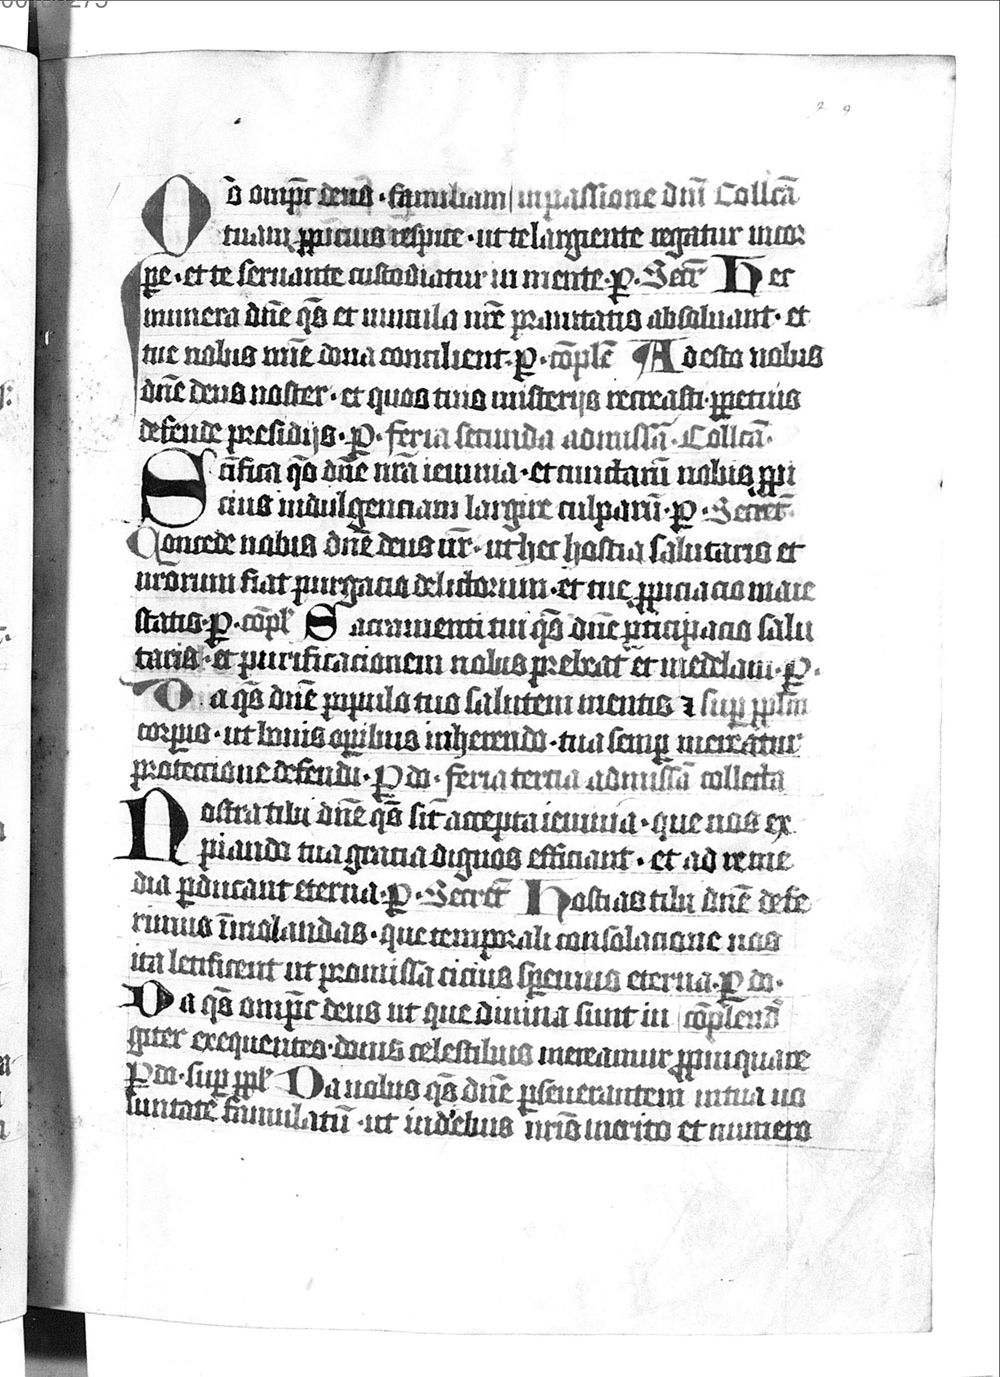 29
Q s̄ omp̄c deus · familiam | in passione dn̄i Collc̄a
tuam ꝓpicius respice · ut te largiente regatur in cor
ꝑe · et te seruante custodiatur in mente · P̱ · Secr̄ Hec
munera dn̄e q̄s et uincula nr̄e prauitatis absoluant · et
tue nobis mīe dona concilient · P̱ · cōplē Adesto nobis
dn̄e deus noster · et quos tuis misterijs recreasti · ꝑpetuis
defende presidijs · P̱ · feria secunda ad missā · Collc̄a ·
Sc̄ifica q̄o dn̄e nr̄a ieiunia · et cunctarū nobis ꝓpi
cius indulgenciam largire culparū · P̱ · Secret̄
Concede nobis dn̄e deus nr̄ · ut hec hostia salutaris et
nrorum fiat purgacio delictorum · et tue ꝓpiciacio maie
statis · P̱ · cōpl̄ Sacramenti tui q̄s dn̄e ꝑticipacio salu
taris · et purificacionem nobis prebeat et medelam · P̱ ·
Da q̄s dn̄e populo tuo salutem mentis ⁊ suꝑ pplm̄
corpis · ut bonis oꝑibus inherendo · tua semꝑ mereatur
protectione defendi · P̱ do · feria tercia ad missā collecta
Nostra tibi dn̄e q̄s sīt accepta ieiunia · que nos ex
piando tua gracia dignos efficiant · et ad reme
dia ꝑducant eterna · P̱ · Secret̄ Hostias tibi dn̄e defe
rimus īmolandas · que temporali consolacione nos
ita letificent ut promissa cicius speremus eterna · P̱ do ·
Da q̄s omp̄c deus ut que diuina sunt iu | cōplend̄
giter exequentes · donis celestibus mereamur ꝓpinquare
P̱ do · suꝑ ppl̄ Da nobis q̄s dn̄e ꝑseuerantem in tua uo
luntate famulatū · ut in diebus nr̄is merito et numero